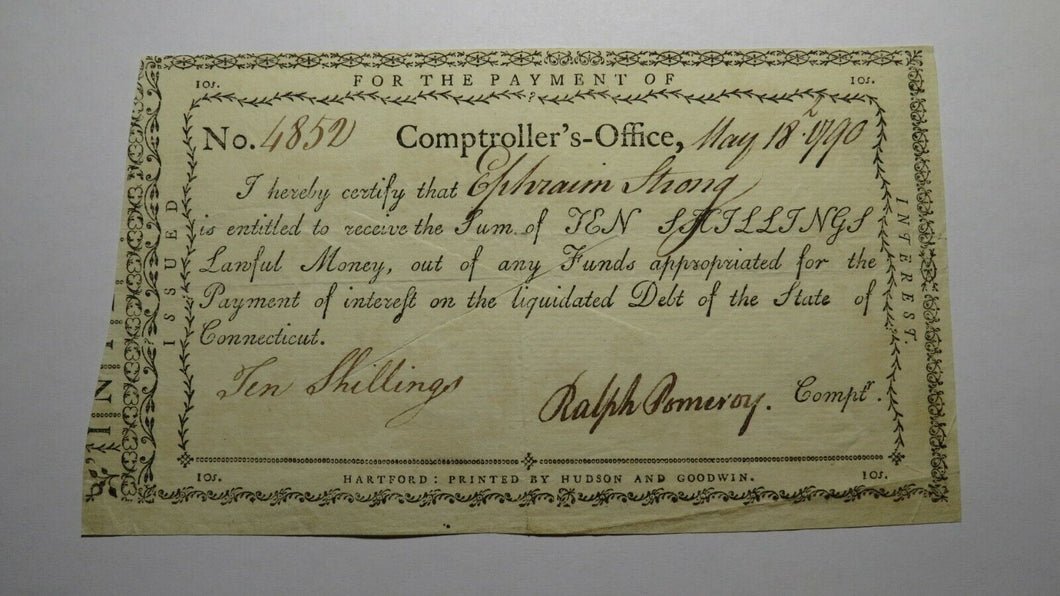 10s. FOR THE PAYMENT OF 10s.
No. 4852 Comptroller's-Office, May 18 1790
I hereby certify that Ephraim Strong
is entitled to receive the Sum of TEN SHILLINGS
Lawful Money, out of any Funds appropriated for the
Payment of interest on the liquidated Debt of the State of
Connecticut.
Ten Shillings
Ralph Pomeroy. Comptr.
10s. HARTFORD: PRINTED BY HUDSON AND GOODWIN. 10s.
ISSUED
INTEREST.